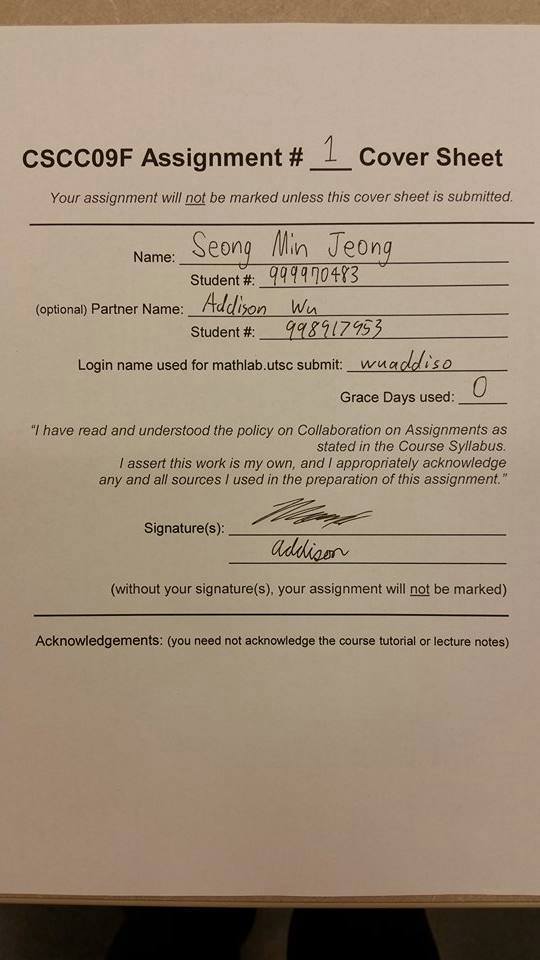 CSCC09F Assignment # 1 Cover Sheet
Your assignment will not be marked unless this cover sheet is submitted.
Name: Seong Min Jeong
Student #: 999970483
(optional) Partner Name: Addison Wu
Student #: 998917953
Login name used for mathlab.utsc submit: wuaddiso
Grace Days used: 0
“I have read and understood the policy on Collaboration on Assignments as
stated in the Course Syllabus.
I assert this work is my own, and I appropriately acknowledge
any and all sources I used in the preparation of this assignment.”
Signature(s):
addison
(without your signature(s), your assignment will not be marked)
Acknowledgements: (you need not acknowledge the course tutorial or lecture notes)